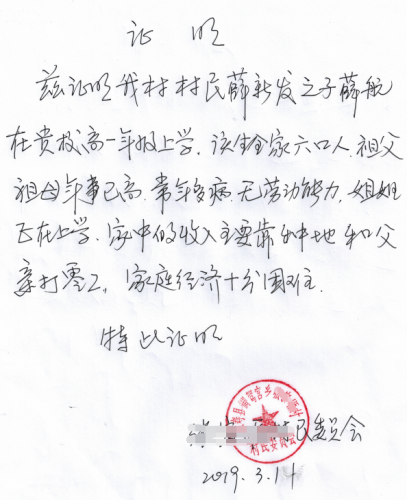 证 明
兹证明我村村民薛新发之子薛航
在贵校高一年级上学。该生全家六口人,祖父
祖母年事已高,常年多病,无劳动能力,姐姐
正在上学,家中的收入主要靠种地和父
亲打零工,家庭经济十分困难.
特此证明
民委员会
村民委员会
2019.3.1